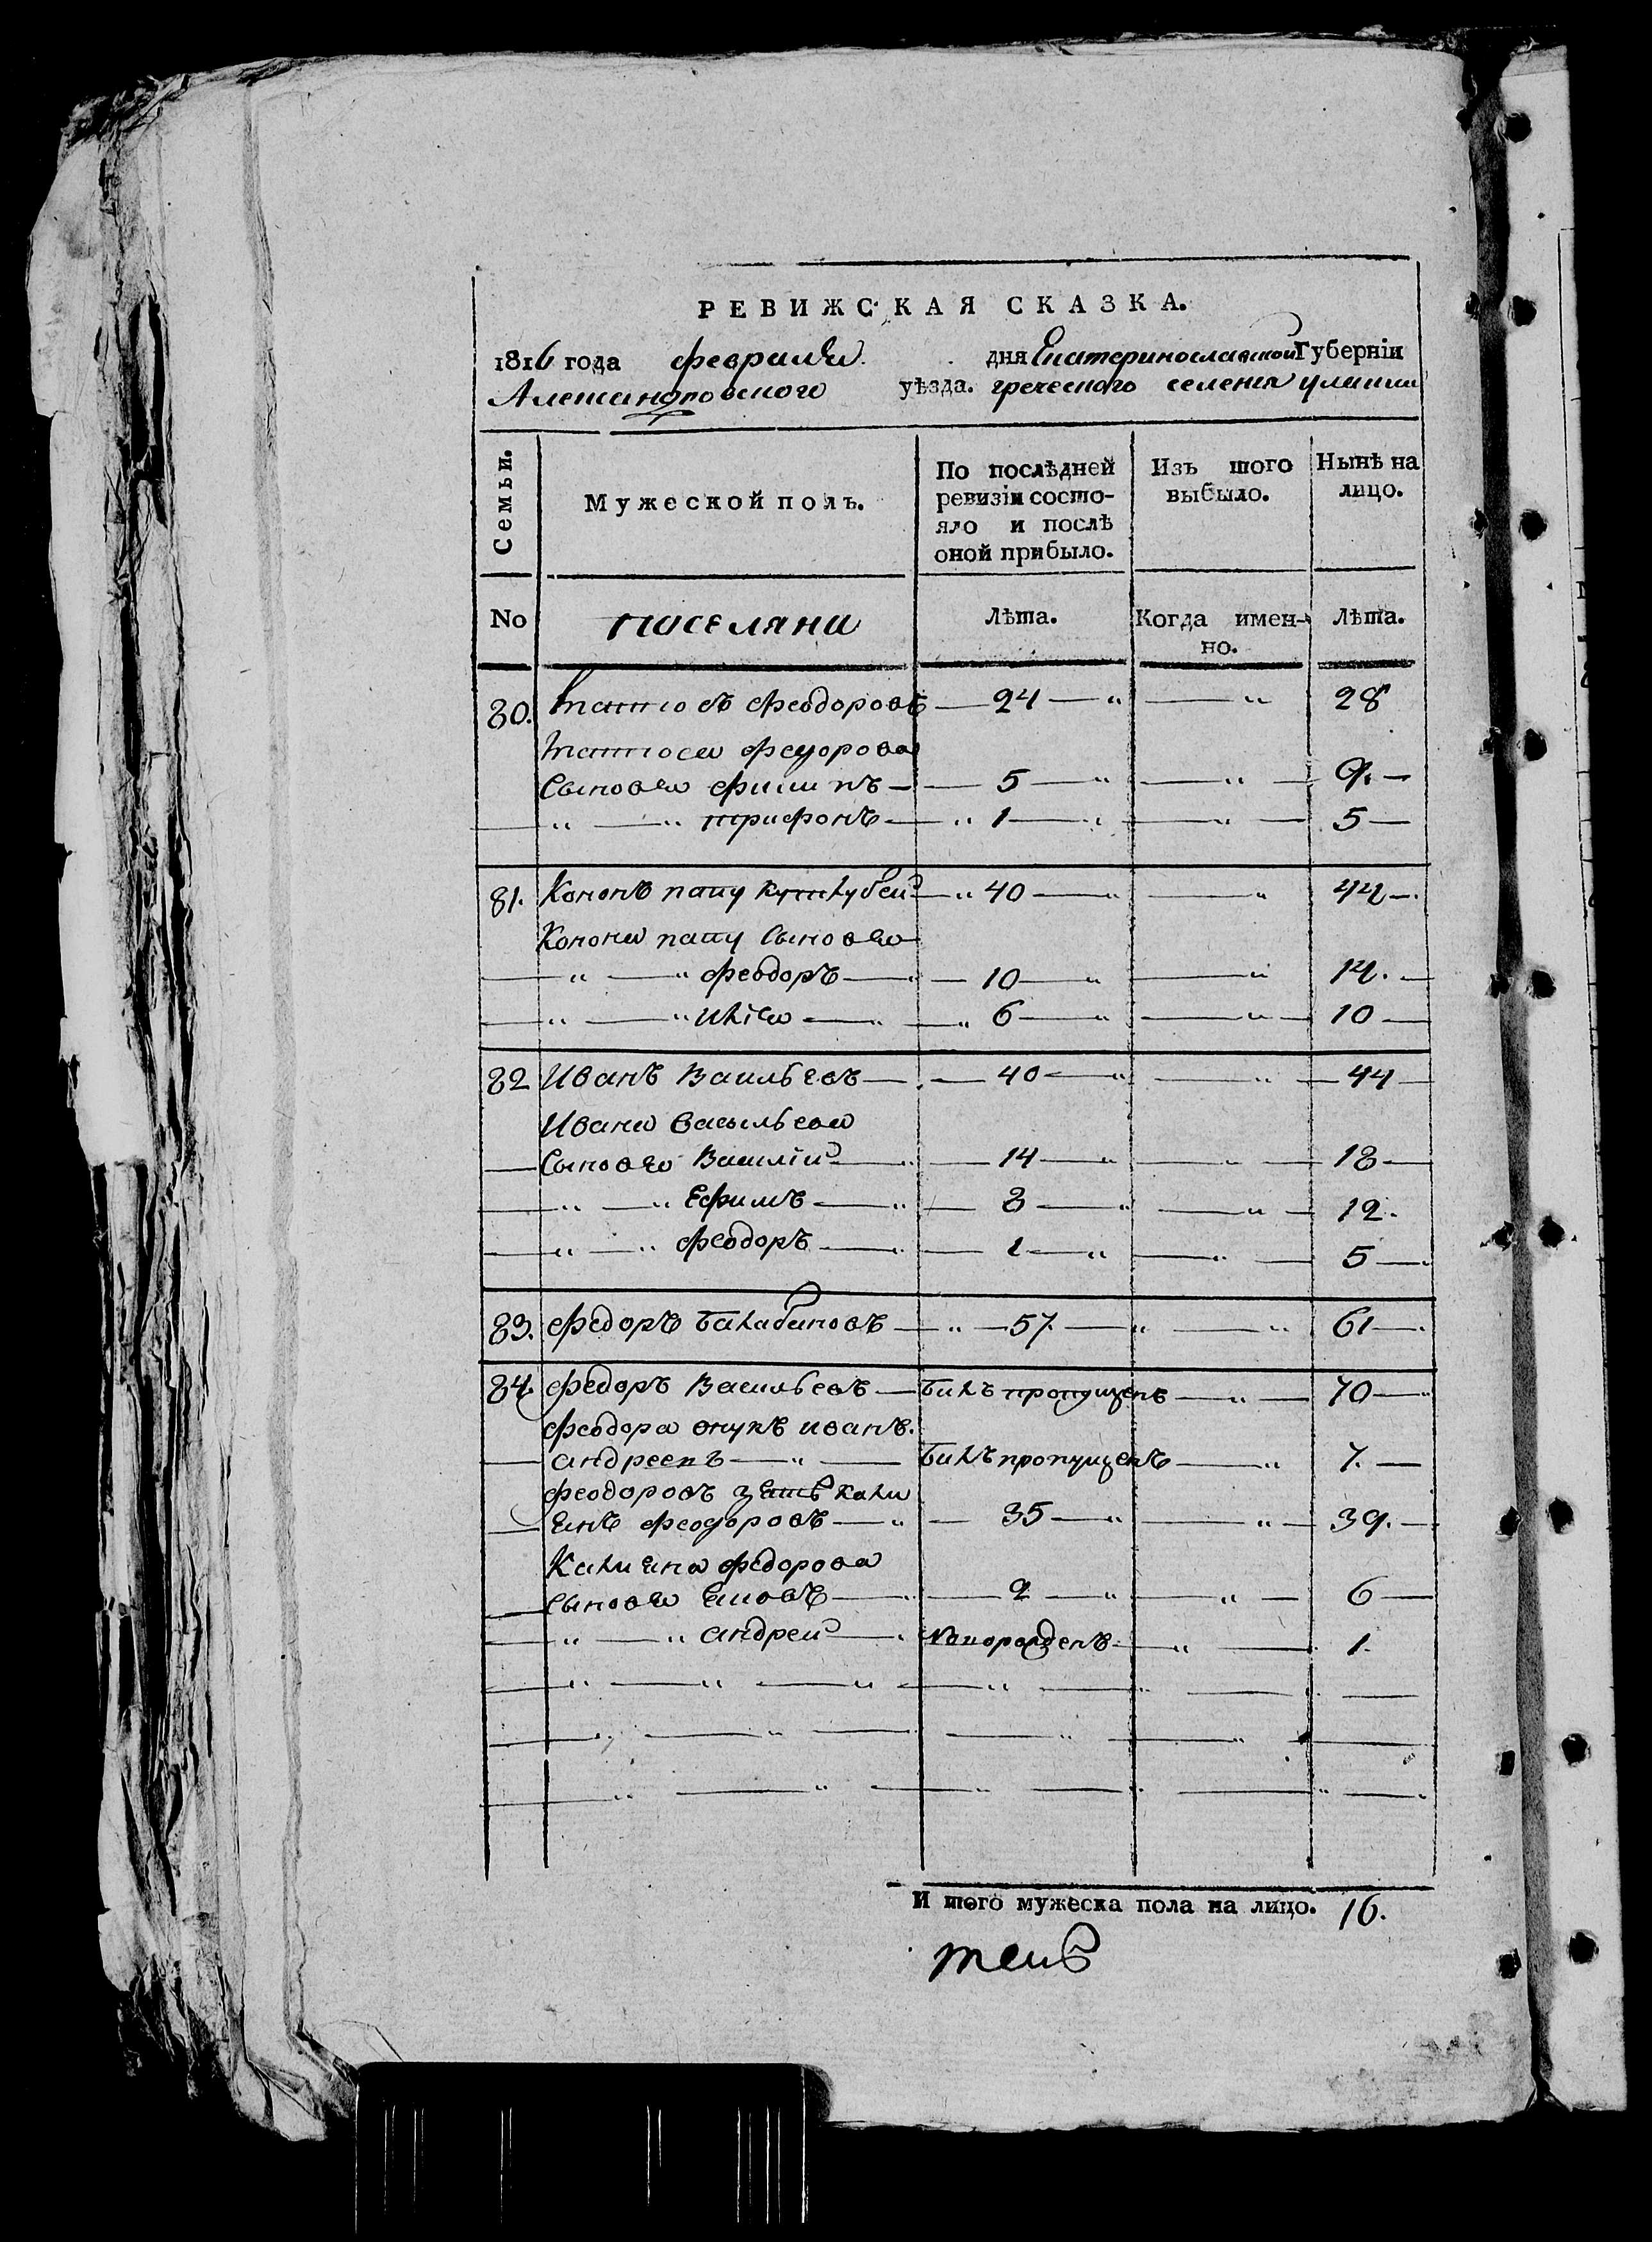 РЕВИЖСКАЯ СКАЗКА.
1816 года февраля дня Екатеринославской Губерніи
Александровского уѣзда. греческого селения улаклы
Семьи.
Мужеской полъ.
По послѣдней ревизіи состояло и послѣ оной прибыло.
Изъ того выбыло.
Нынѣ на лицо.
No поселяни Лѣта. Когда именно. Лѣта.
80. феодоровъ 24 28
федорова
Сыновя филипъ 5 9.
трифонъ 1 5
81. Кононъ папу 40 44.
Конона папу Сыновя
феодоръ 10 14.
Илія 6 10
82 Иванъ Васильевъ 40 44
Ивана васильева
Сыновя Василій 14 18
Ефимъ 8 12.
феодоръ 1 5
83. федоръ балабановъ 57. 61
84. федоръ Васильевъ билъ пропущенъ 70
феодора внукъ иванъ.
андреевъ билъ пропущенъ 7.
феодоровъ зеть кали
янъ феодоровъ 35 39.
Калияна федорова
Сыновя Яковъ 2 6
андрей новорожденъ 1.
И того мужеска пола на лицо. 16.